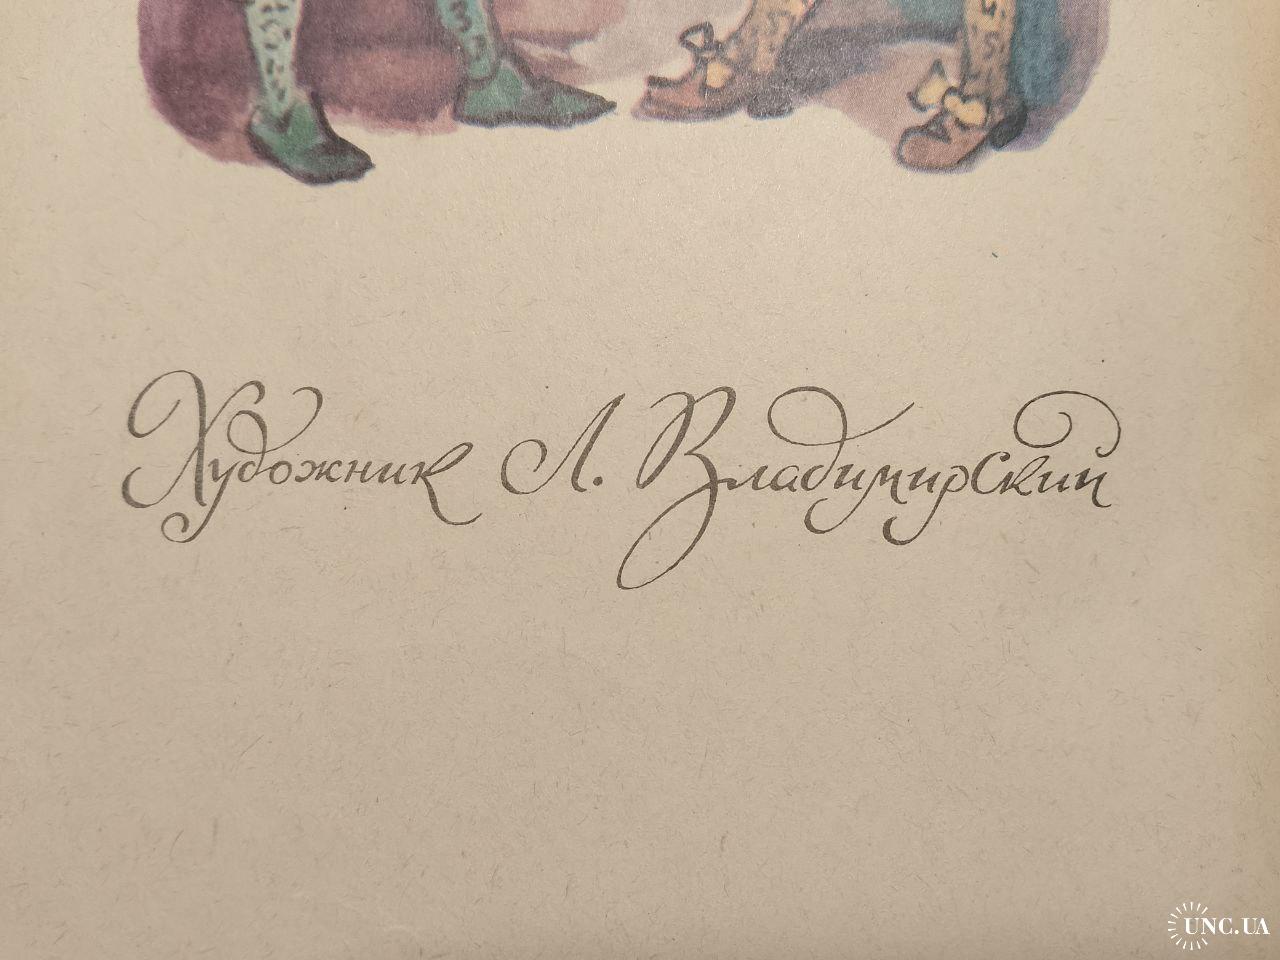 Художник Л. Владимирский
UNC.UA